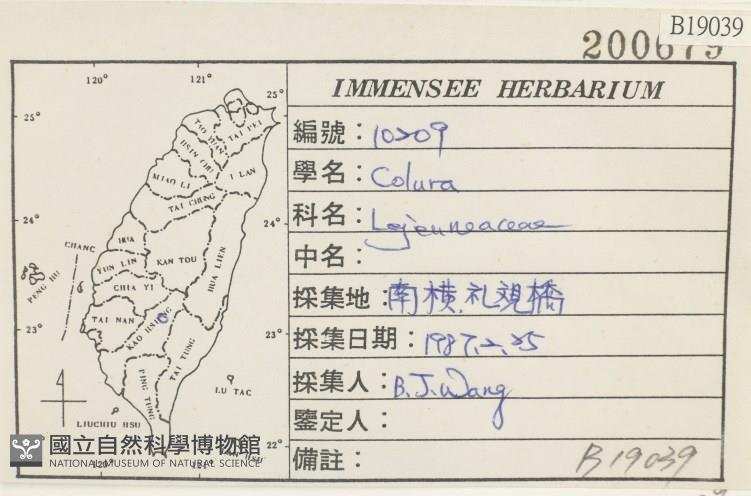 B19039
200679
IMMENSEE HERBARIUM
編號：10209
學名：Colura
科名：Lejeuneaceae
中名：
採集地：南横.礼観橋
採集日期：1987.2.25
採集人：B.J.Wang
鑒定人：
備註：
B19039
120°
121°
25°
25°
TAO YUAN
TAI PEI
HSIN CHU
I LAN
MIAO LI
TAI CHUNG
24°
24°
CHANG
HUA
YUN LIN
KAN TOU
HUA LIEN
PENG HU
CHIA YI
TAI NAN
KAO HSIUNG
23°
23°
TAI TUNG
PING TUNG
LU TAC
LIUCHIU HSU
22°
HSU
120°
121°
國立自然科學博物館
NATIONAL MUSEUM OF NATURAL SCIENCE